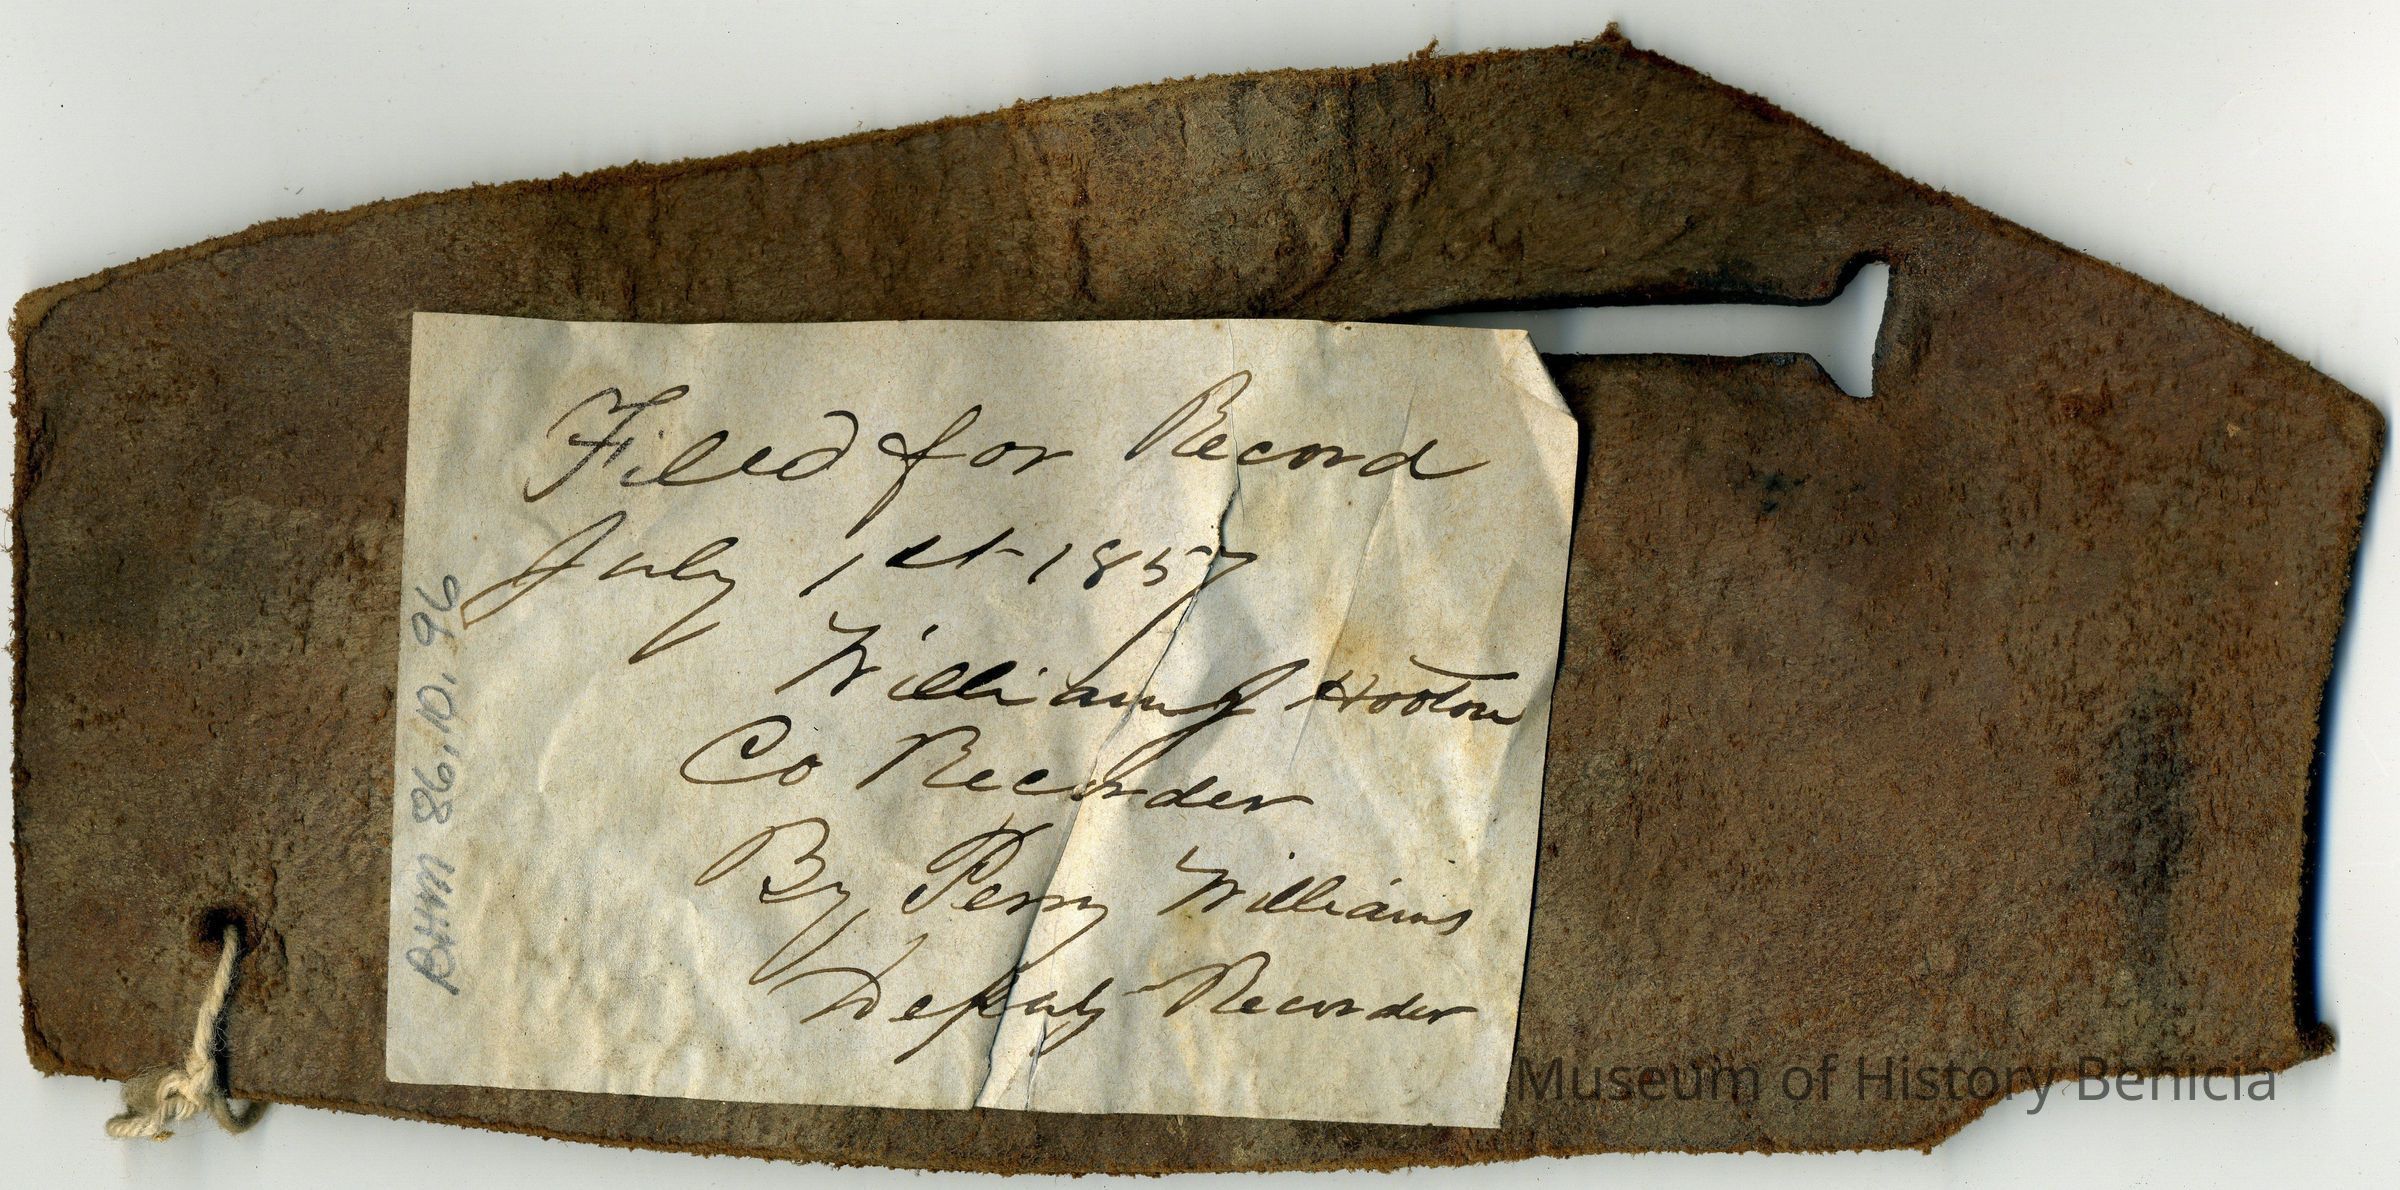 Filed for Record
July 1st 1857
William J Hooton
Co Recorder
By Perry Williams
Deputy Recorder
BHM 86.10.96
Museum of History Benicia